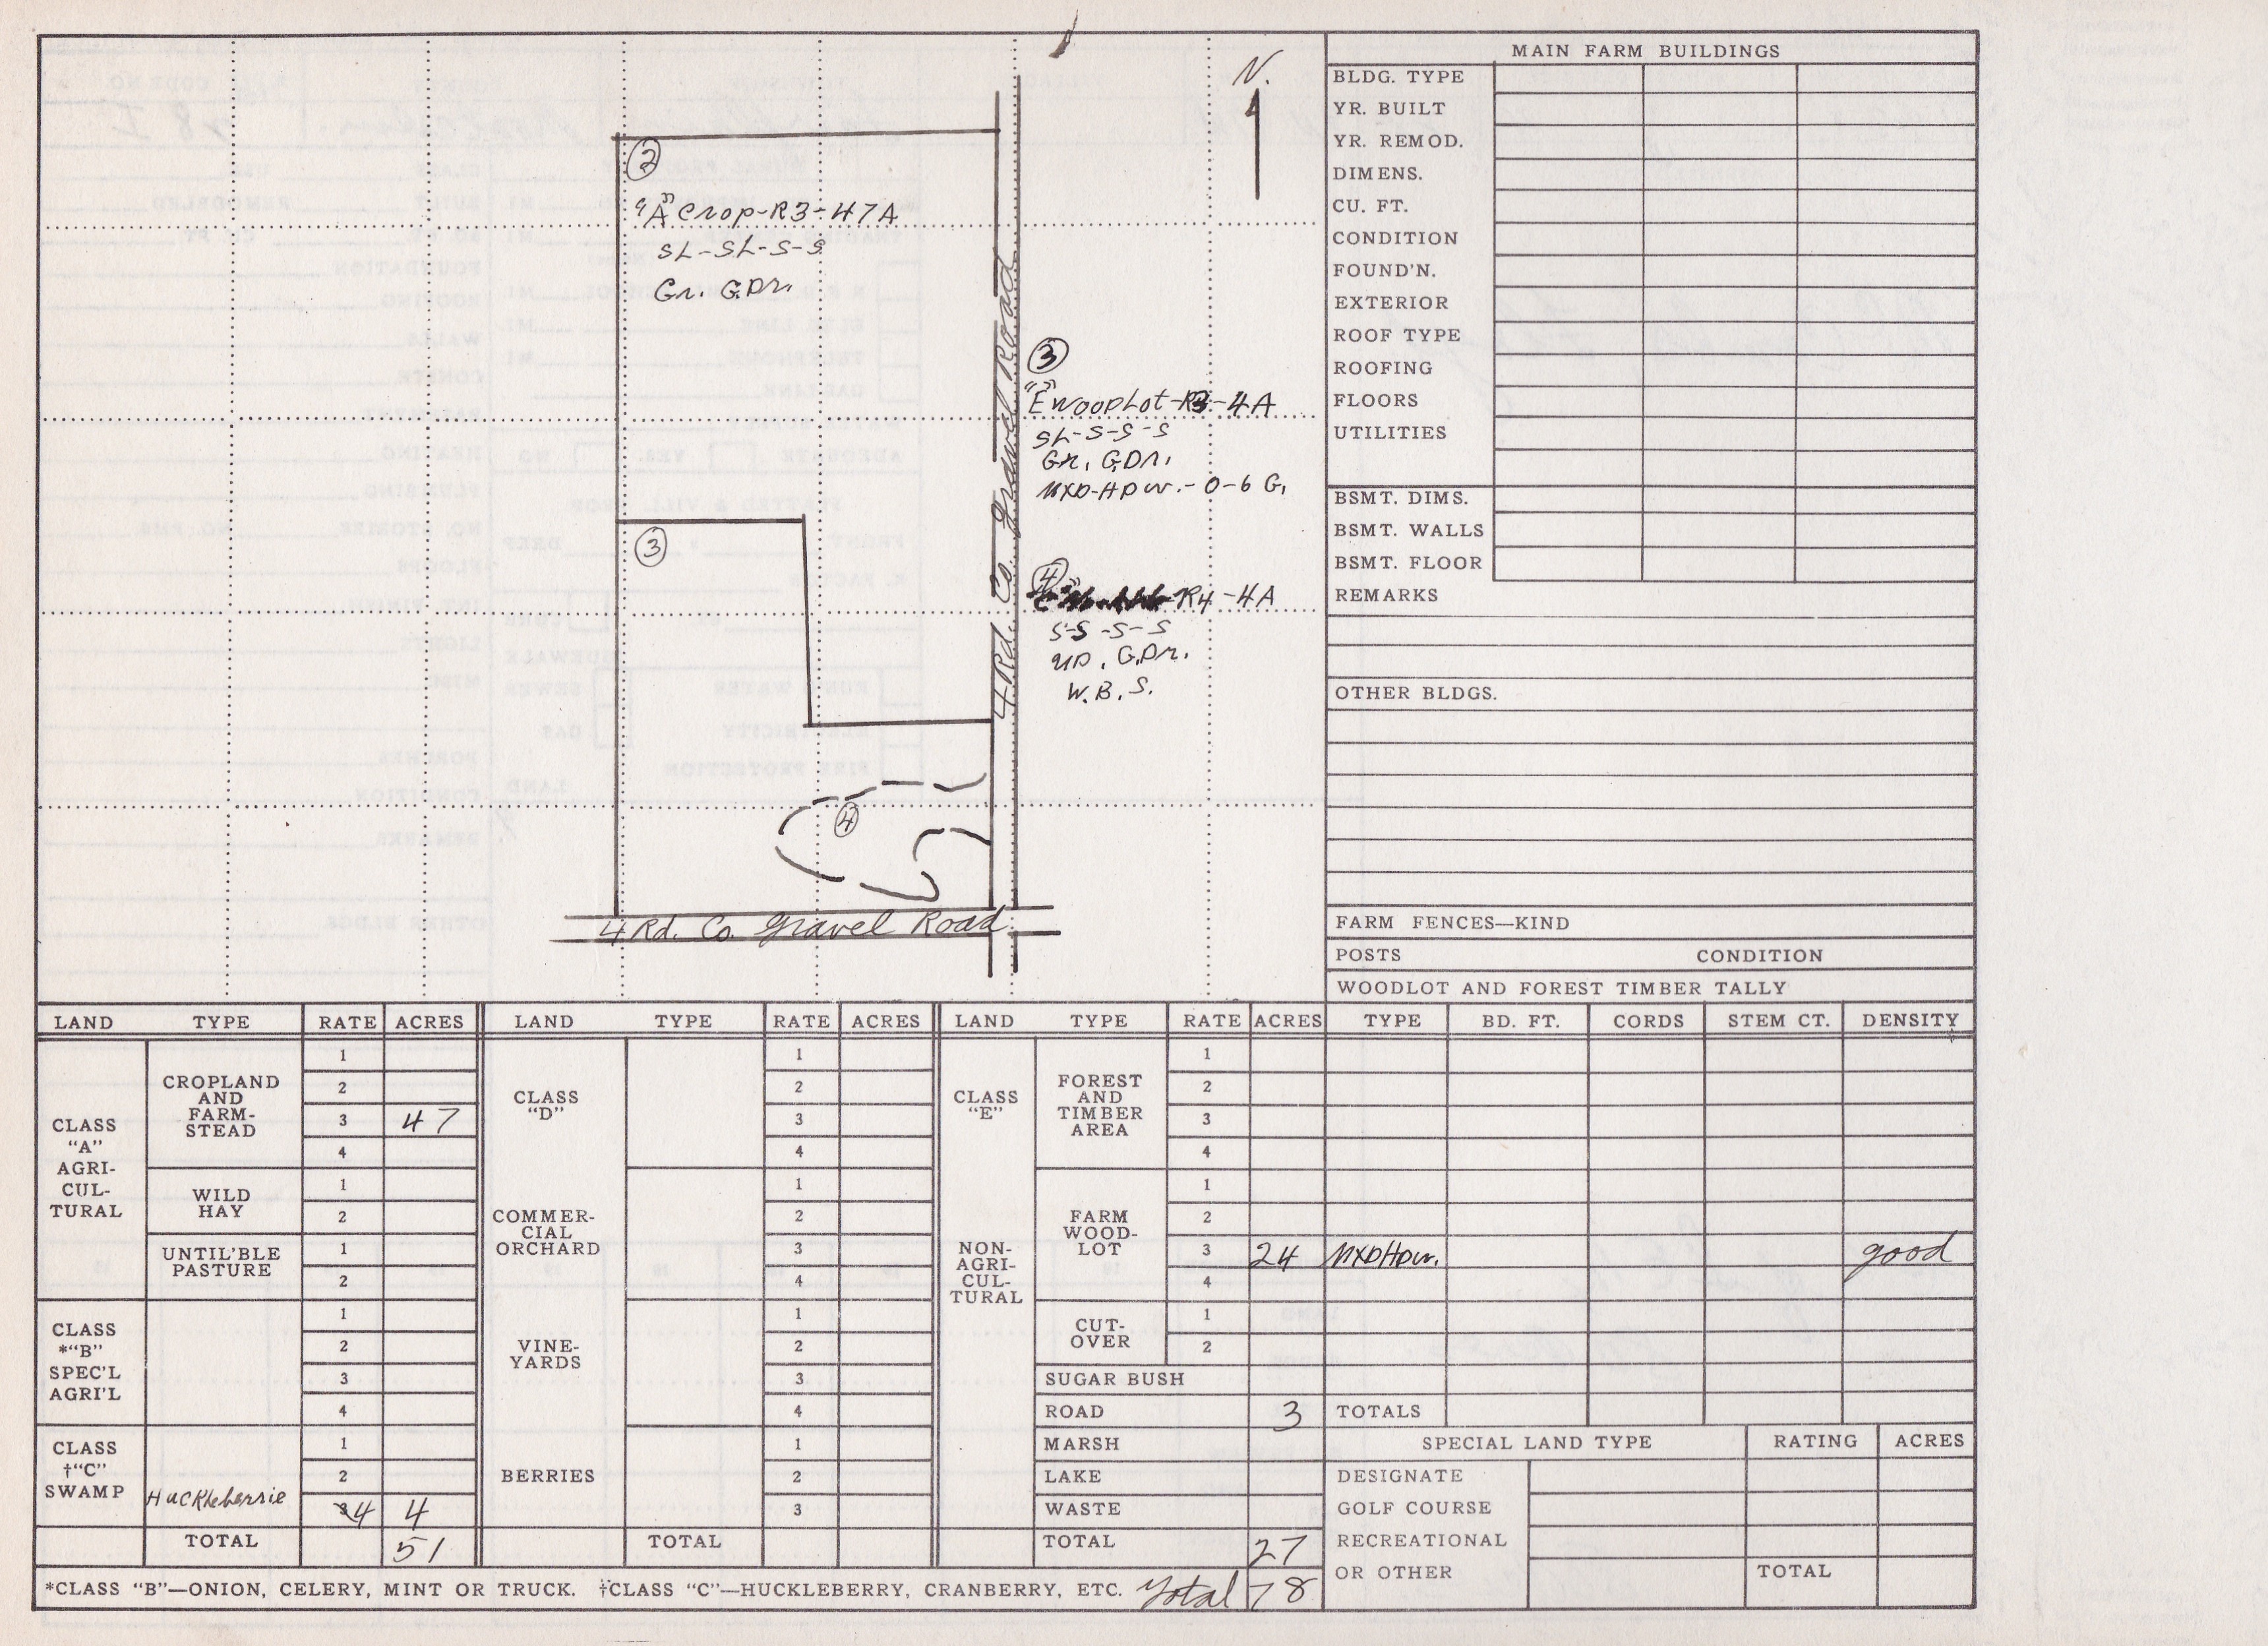 N.
②
"A" Crop-R3-47A
SL-SL-S-S
Gr. G.Dr.
4 Rd. Co. Gravel Road
③
"E" WOODLOT-R3-4A
SL-S-S-S
Gr. G.Dr.
MXD-HDW.-0-6 G.
③
④
R4-4A
S-S-S-S
UD. G.Dr.
W.B.S.
④
4 Rd. Co. Gravel Road
MAIN FARM BUILDINGS
BLDG. TYPE
YR. BUILT
YR. REMOD.
DIMENS.
CU. FT.
CONDITION
FOUND'N.
EXTERIOR
ROOF TYPE
ROOFING
FLOORS
UTILITIES
BSMT. DIMS.
BSMT. WALLS
BSMT. FLOOR
REMARKS
OTHER BLDGS.
FARM FENCES—KIND
POSTS CONDITION
WOODLOT AND FOREST TIMBER TALLY
LAND TYPE RATE ACRES LAND TYPE RATE ACRES LAND TYPE RATE ACRES TYPE BD. FT. CORDS STEM CT. DENSITY
CLASS
"A"
AGRI-
CUL-
TURAL
CROPLAND
AND
FARM-
STEAD
1
2
3 47
4
WILD
HAY
1
2
UNTIL'BLE
PASTURE
1
2
CLASS
*"B"
SPEC'L
AGRI'L
1
2
3
4
CLASS
†"C"
SWAMP
Huckleberrie
1
2
4 4
TOTAL 51
CLASS
"D"
COMMER-
CIAL
ORCHARD
1
2
3
4
1
2
3
4
VINE-
YARDS
1
2
3
4
BERRIES
1
2
3
TOTAL
CLASS
"E"
NON-
AGRI-
CUL-
TURAL
FOREST
AND
TIMBER
AREA
1
2
3
4
FARM
WOOD-
LOT
1
2
3 24 MXDHDW. good
4
CUT-
OVER
1
2
SUGAR BUSH
ROAD 3
MARSH
LAKE
WASTE
TOTAL 27
TOTALS
SPECIAL LAND TYPE RATING ACRES
DESIGNATE
GOLF COURSE
RECREATIONAL
OR OTHER TOTAL
*CLASS "B"—ONION, CELERY, MINT OR TRUCK. †CLASS "C"—HUCKLEBERRY, CRANBERRY, ETC. Total 78